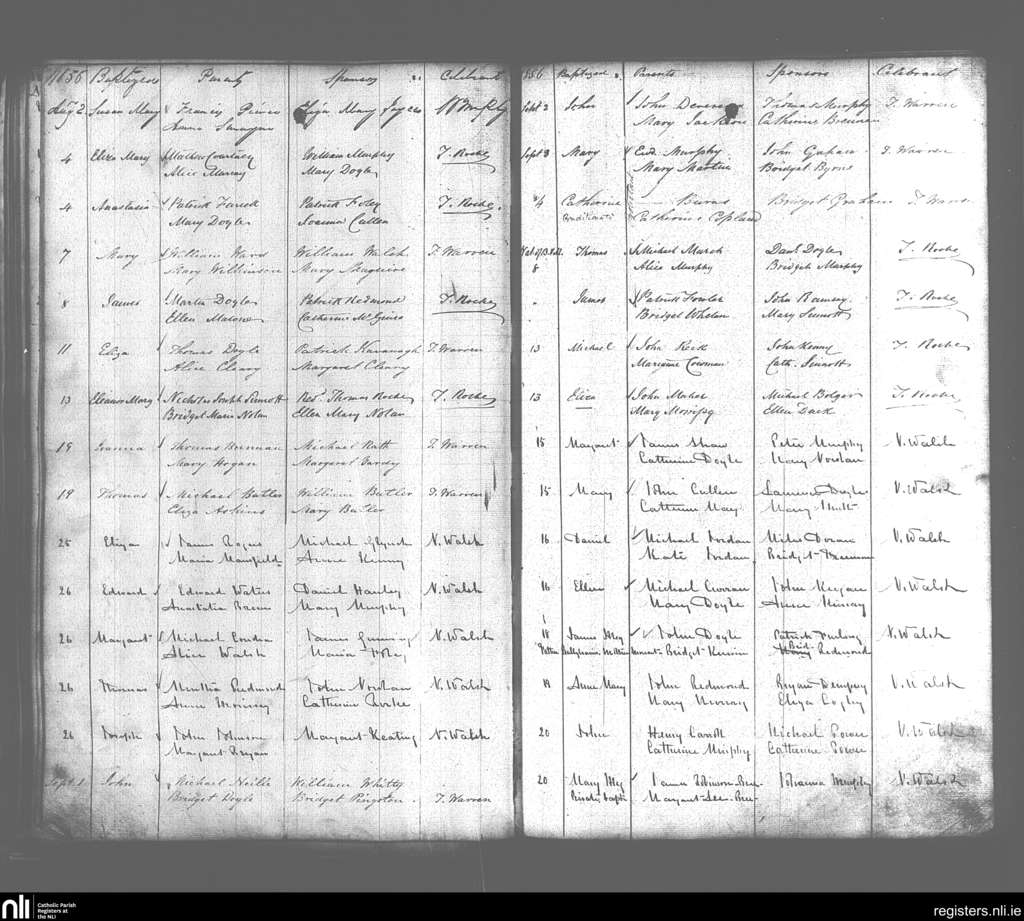 1856 Baptized Parents Sponsors Celebrant
Aug 2 Susan Mary Francis Prince Eliza Mary
Anna
4 Eliza Mary Mathew Courtney William Murphy T. Roche
Alice Murray Mary Doyle
4 Anastasia Patrick Patrick Foley T. Roche
Mary Doyle Joanna Cullen
7 Mary William Ward William Walsh T. Warren
Mary Wilkinson Mary
8 James Martin Doyle Patrick Redmond T. Roche
Ellen Malone Catherine McGuire
11 Eliza Thomas Doyle Patrick Kavanagh T. Warren
Alice Cleary Margaret Cleary
13 Eleanor Mary Nicholas Joseph Sinnott Revd Thomas Roche T. Roche
Bridget Maria Nolan Ellen Mary Nolan
19 Joanna Thomas Brennan Michael Rath T. Warren
Mary Hogan Margaret
19 Thomas Michael Butler William Butler T. Warren
Eliza Askins Mary Butler
25 Eliza James Rogers Michael Glynch N. Walsh
Maria Mansfield Anne Kenny
26 Edward Edward Waters Daniel Hanley N. Walsh
Anastatia Mary Murphy
26 Margaret Michael Condon James N. Walsh
Alice Walsh Maria Foley
26 Thomas Redmond John Nowlan N. Walsh
Anne Catherine Roche
26 Joseph John Johnson Margaret Keating N. Walsh
Margaret Bryan
Sept 1 John Michael Neille William Whitty
Bridget Doyle Bridget Pingston T. Warren
1856 Baptized Parents Sponsors Celebrant
Sept 2 John John Devereux Thomas Murphy T. Warren
Mary Jackson Catherine Brennan
Sept 3 Mary Edd Murphy John Gahan T. Warren
Mary Martin Bridget Byrne
4 Catherine Burns Bridget Graham T. Warren
Conditionate Catherine Copland
Thomas Michael Murph Danl Doyle T. Roche
8 Alice Murphy Bridget Murphy
" James Patrick Fowler John Ramsey T. Roche
Bridget Whelan Mary Sinnott
13 Michael John Keik John Kenny T. Roche
Marianne Cowman Cath. Sinnott
13 Eliza John Maher Michael Bolger T. Roche
Mary Morrissy Ellen Duck
15 Margaret James Shaw Peter Murphy N. Walsh
Catherine Doyle Mary Nowlan
15 Mary John Cullen Laurence Doyle N. Walsh
Catherine May Mary
16 Daniel Michael Jordan Miles Doran N. Walsh
Kate Jordan Bridget
16 Ellen Michael Curran John Keegan N. Walsh
Mary Doyle Anne Kinsay
18 James John Doyle Patrick Furlong N. Walsh
Bridget Brid. Redmond
18 Anne Mary John Redmond Bryan Dempsey N. Walsh
Mary Murray Eliza Cogley
20 John Henry Michael Power N. Walsh
Catherine Murphy Catherine Power
20 Mary James Robinson Johanna Murphy N. Walsh
Margaret Lee
nli
Catholic Parish
Registers at
the NLI
registers.nli.ie